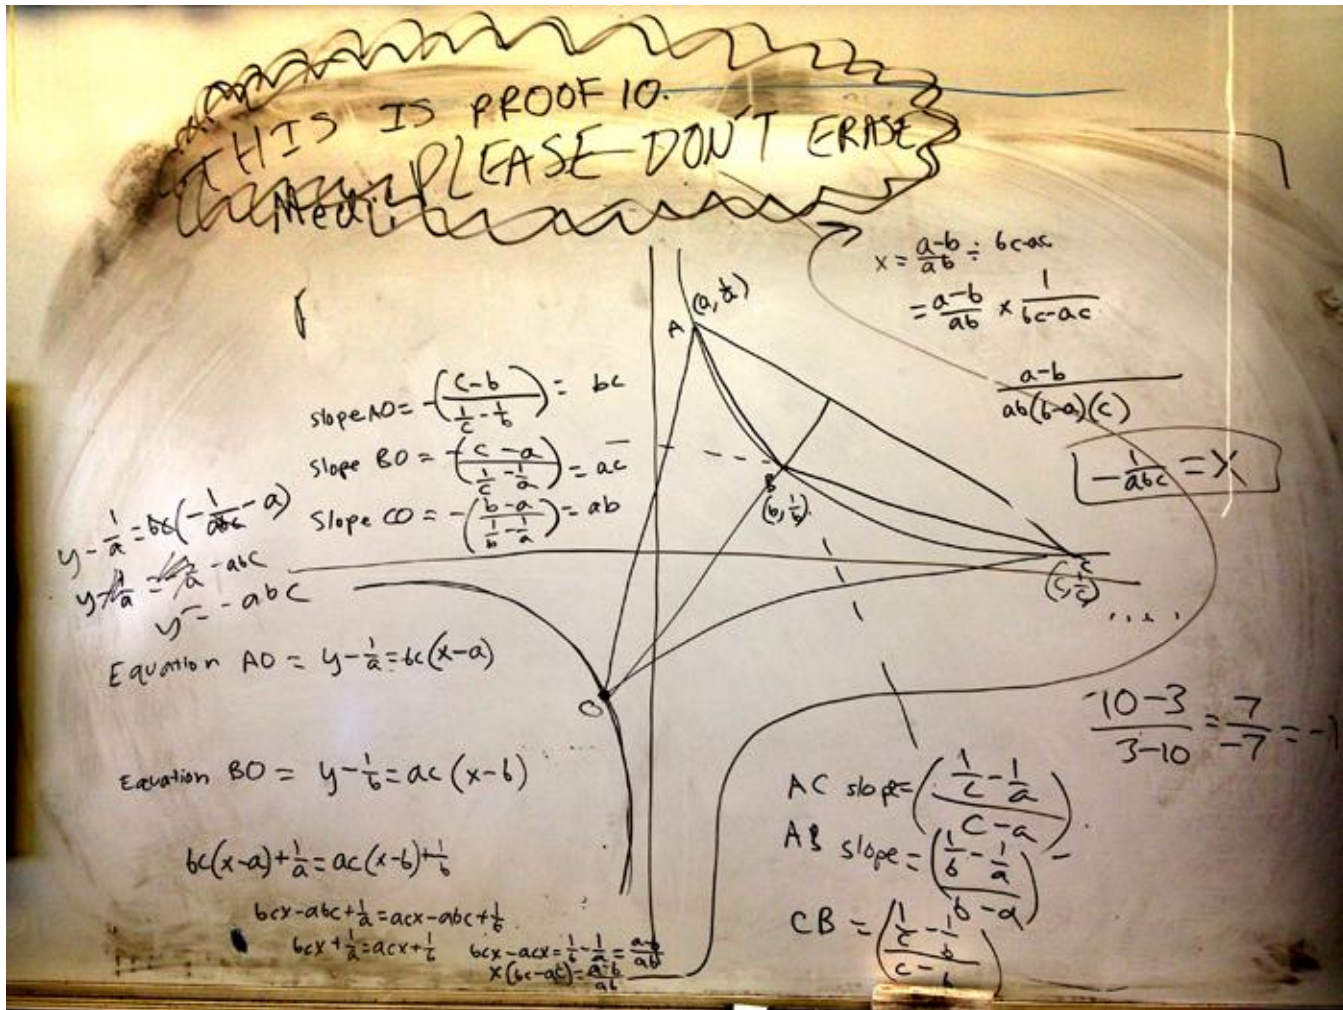 THIS IS PROOF 10.
PLEASE DON'T ERASE
Medi
x = (a-b)/(ab) ÷ bc-ac
= (a-b)/(ab) × 1/(bc-ac)
(a-b)/(ab(b-a)(c))
-1/(abc) = X
(a, 1/a)
A
B
(b, 1/b)
C
(c, 1/c)
O
slope AO = -((c-b)/(1/c - 1/b)) = bc
slope BO = -((c-a)/(1/c - 1/a)) = ac
slope CO = -((b-a)/(1/b - 1/a)) = ab
y - 1/a = bc(-1/(abc) - a)
y - 1/a = -1/a - abc
y = -abc
Equation AO = y - 1/a = bc(x-a)
Equation BO = y - 1/b = ac(x-b)
bc(x-a) + 1/a = ac(x-b) + 1/b
bcx - abc + 1/a = acx - abc + 1/b
bcx + 1/a = acx + 1/b
bcx - acx = 1/b - 1/a = (a-b)/(ab)
x(bc-ac) = (a-b)/(ab)
(10-3)/(3-10) = 7/(-7) = -1
AC slope = ((1/c - 1/a)/(c-a))
AB slope = ((1/b - 1/a)/(b-a))
CB = ((1/c - 1/b)/(c-b))